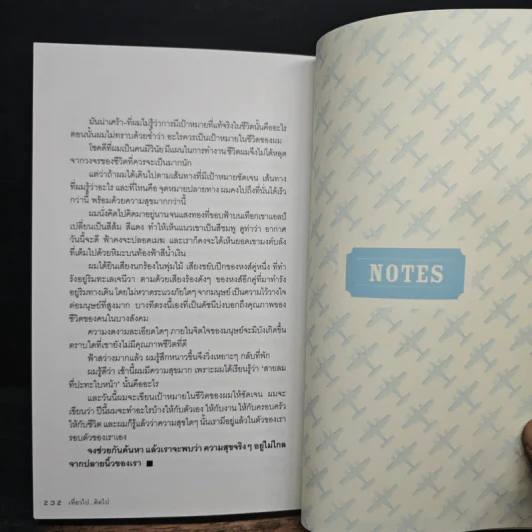 มันน่าเศร้า-ที่ผมไม่รู้ว่าการมีเป้าหมายที่แท้จริงในชีวิตนั้นคืออะไร
ตอนนั้นผมไม่ทราบด้วยซ้ำว่า อะไรควรเป็นเป้าหมายของผม
โชคดีที่ผมเป็นคนมีวินัย มีแผนในการทำงาน ชีวิตผมจึงไม่ได้หลุด
จากวงจรของชีวิตที่ควรจะเป็นมากนัก
แต่ว่าถ้าผมได้เดินไปตามเส้นทางที่มีเป้าหมายชัดเจน เส้นทาง
ที่ผมรู้ว่าอะไร และที่ไหนคือ จุดหมายปลายทาง ผมคงไปถึงที่นั่นได้เร็ว
กว่านี้ พร้อมด้วยความสุขมากกว่านี้
ผมนั่งคิดไปคิดมาอยู่นานจนแสงทองที่ขอบฟ้าบนเทือกเขาแอลป์
เปลี่ยนเป็นสีส้ม สีแดง ทำให้เห็นแนวเขาเป็นสีชมพู ดูท่าว่า อากาศ
วันนี้จะดี ฟ้าคงจะปลอดเมฆ และเราก็คงจะได้เห็นยอดเขามงต์บลัง
ที่เต็มไปด้วยหิมะบนท้องฟ้าสีน้ำเงิน
ผมได้ยินเสียงนกร้องในพุ่มไม้ เสียงขยับปีกของหงส์คู่หนึ่ง ที่ทำ
รังอยู่ริมทะเลเจนีวา ตามด้วยเสียงร้องดังๆ ของหงส์อีกคู่ที่มาทำรัง
อยู่ริมทางเดิน โดยไม่หวาดระแวงภัยใดๆ จากมนุษย์ เป็นความไว้วางใจ
ต่อมนุษย์ที่สูงมาก บางทีตรงนี้เองที่เป็นดัชนีบ่งบอกถึงคุณภาพของ
ชีวิตของคนในบางสังคม
ความงดงามละเอียดใดๆ ภายในจิตใจของมนุษย์จะมีบังเกิดขึ้น
ตราบใดที่เขายังไม่มีคุณภาพชีวิตที่ดี
ฟ้าสว่างมากแล้ว ผมรู้สึกหนาวขึ้นจึงวิ่งเหยาะๆ กลับที่พัก
ผมรู้ดีว่า เช้านี้ผมมีความสุขมาก เพราะผมได้เรียนรู้ว่า 'สายลม
ที่ปะทะใบหน้า' นั่นคืออะไร
และวันนี้ผมจะเขียนเป้าหมายในชีวิตของผมให้ชัดเจน ผมจะ
เขียนว่า ปีนี้ผมจะทำอะไรบ้างให้กับตัวเอง ให้กับงาน ให้กับครอบครัว
ให้กับชีวิต และผมก็รู้แล้วว่าความสุขใดๆ นั้นเรามีอยู่แล้วในตัวของเรา
รอบตัวของเราเอง
จงช่วยกันค้นหา แล้วเราจะพบว่า ความสุขจริงๆ อยู่ไม่ไกล
จากปลายนิ้วของเรา
232 เที่ยวไป...คิดไป
NOTES